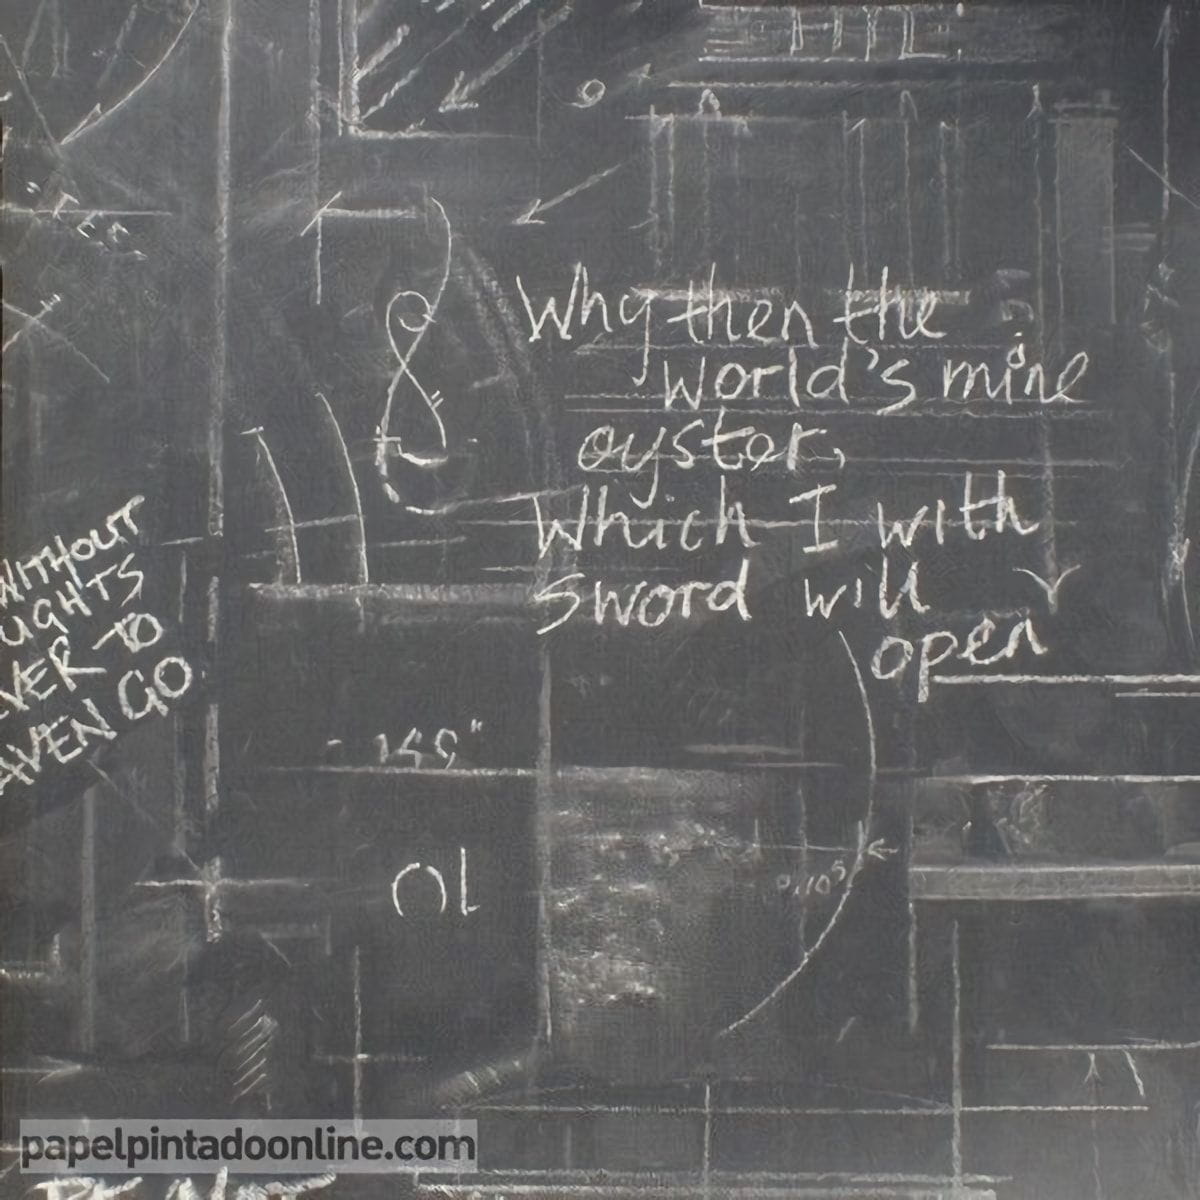 Why then the
world's mine
oyster,
Which I with
sword will
open
WITHOUT
UGHTS
VER TO
AVEN GO
149"
OL
papelpintadoonline.com